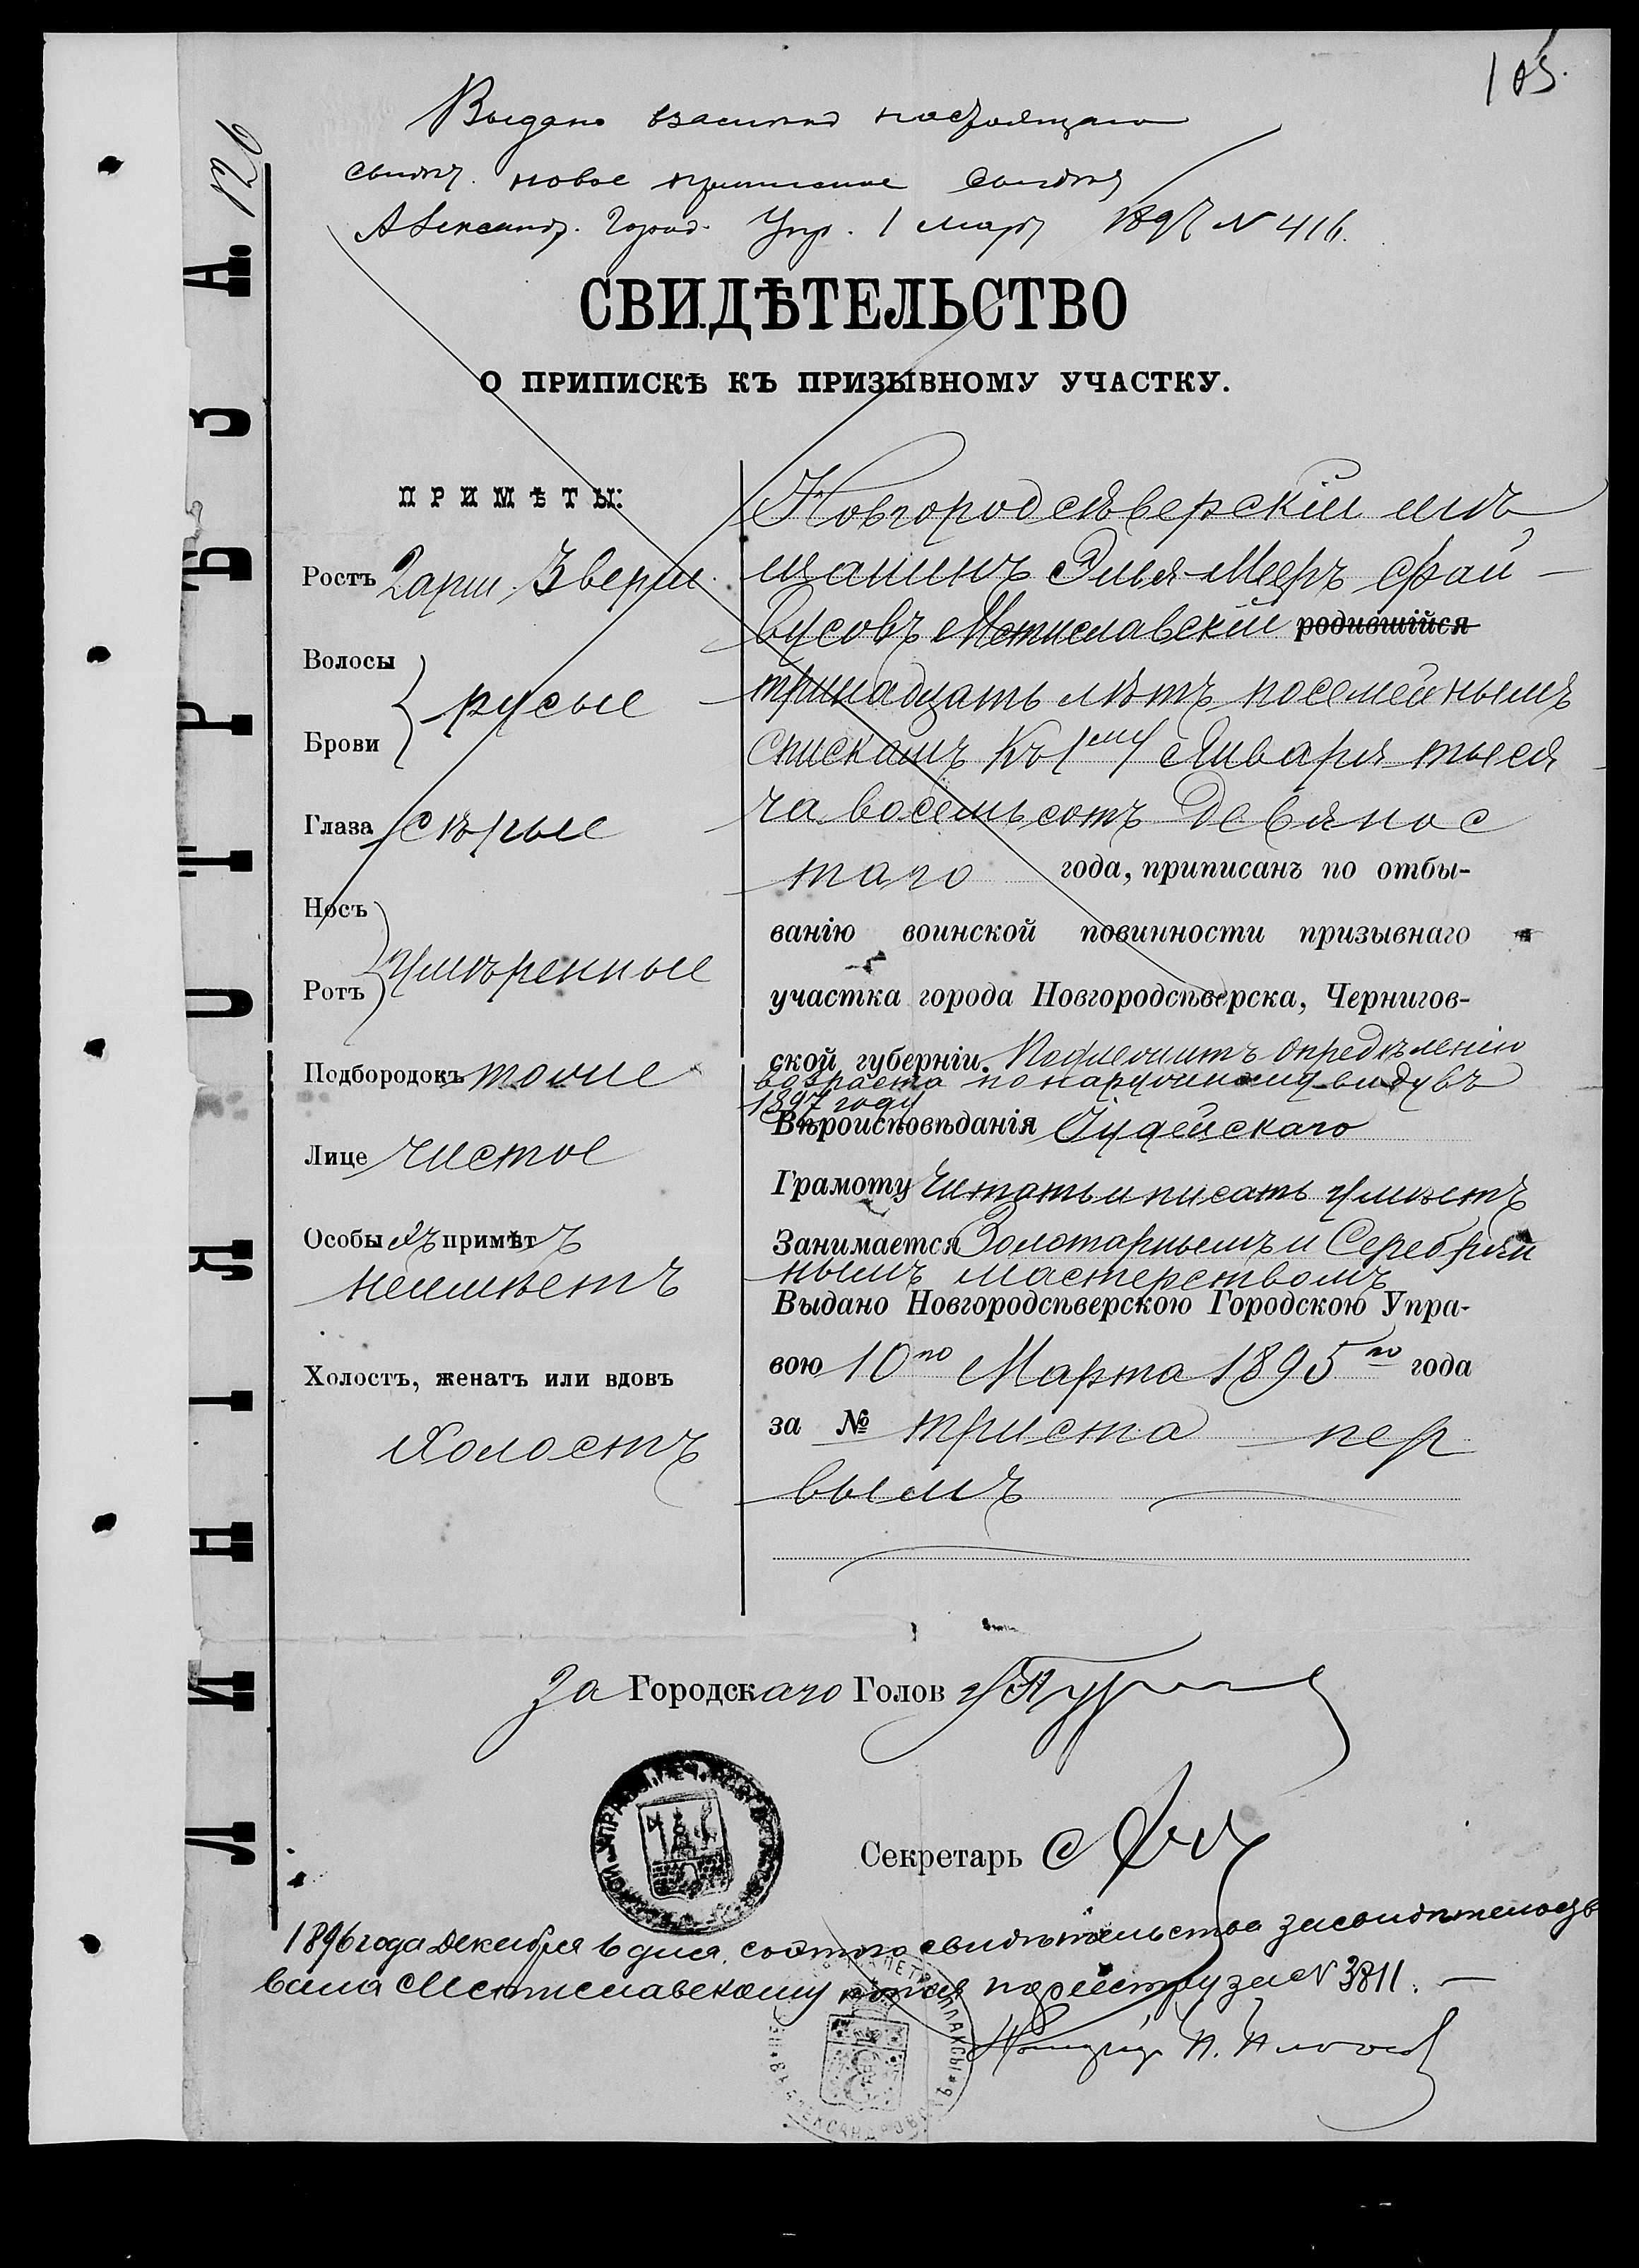 105.
126
Выдано взаменъ настоящаго
свидѣт. новое приписное свидѣт.
Александ. Город. Упр. 1 Март 1897 N 416.
СВИДѢТЕЛЬСТВО
О ПРИПИСКѢ КЪ ПРИЗЫВНОМУ УЧАСТКУ.
ЛИНІЯ ОТРѢЗА.
ПРИМѢТЫ:
Ростъ 2 арш. 3 верш.
Волосы
русые
Брови
Глаза сѣрые
Носъ
умѣренные
Ротъ
Подбородокъ тоже
Лице чистое
Особыхъ примѣтъ
неимѣетъ
Холостъ, женатъ или вдовъ
Холостъ
Новгородсѣверскій мѣ
щанинъ Элья-Мееръ Фай-
вусовъ Мстиславскій родившійся
тринадцать лѣтъ посемейнымъ
спискамъ къ 1му Января тыся
ча восемьсотъ девянос
таго года, приписанъ по отбы-
ванію воинской повинности призывнаго
участка города Новгородсѣверска, Чернигов-
ской губерніи. Подлежитъ опредѣленію
возраста по наружному виду въ
1897 году
Вѣроисповѣданія Іудейскаго
Грамоту Читать и писать умѣетъ
Занимается Золотарнымъ и Серебрян
нымъ мастерствомъ
Выдано Новгородсѣверскою Городскою Упра-
вою 10го Марта 1895го года
за № триста пер
вымъ
За Городскаго Голову
Секретарь
1896 года Декабря 6 дня, съ этого свидѣтельства засвидѣтельство
вана Мстиславскому копія по реестру за N 3811. —